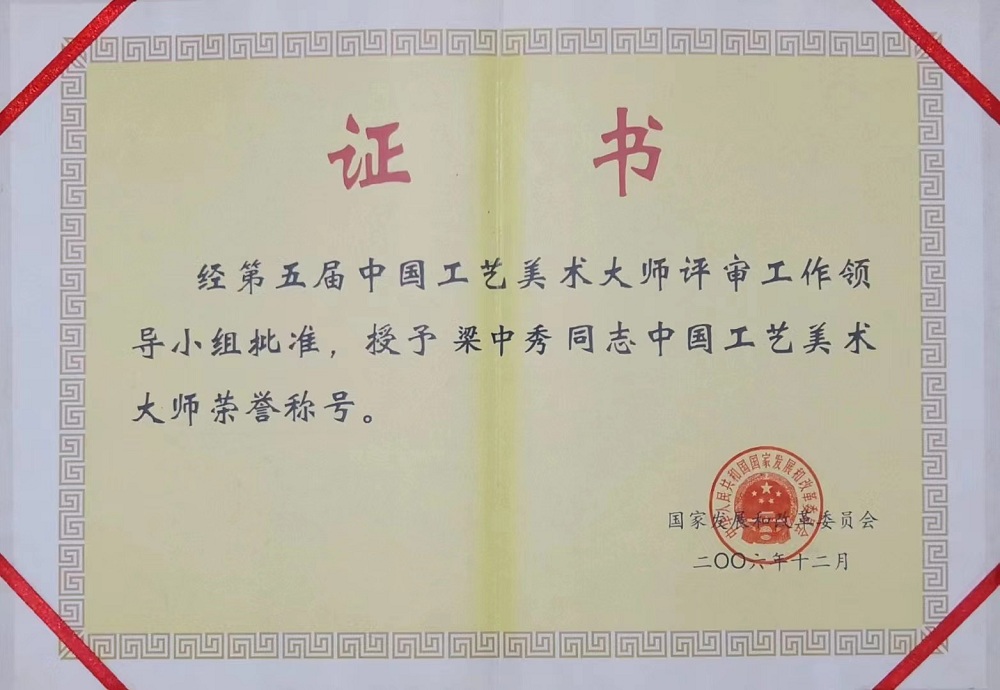 证书
经第五届中国工艺美术大师评审工作领
导小组批准，授予梁中秀同志中国工艺美术
大师荣誉称号。
中华人民共和国国家发展和改革委员会
国家发展和改革委员会
二〇〇六年十二月